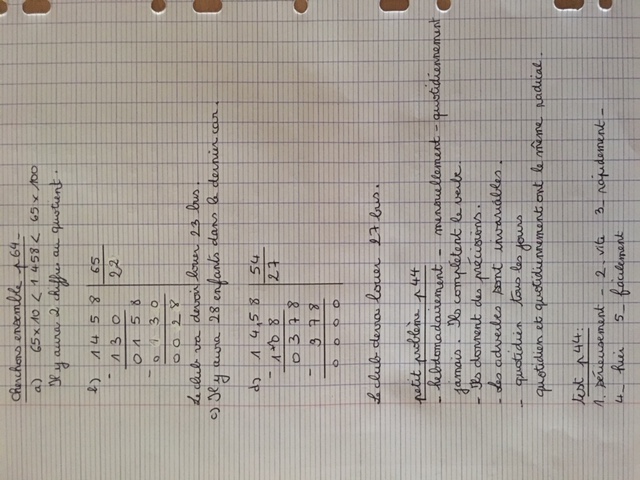 Cherchons ensemble p64_
a) 65 x 10 < 1 458 < 65 x 100
Il y aura 2 chiffres au quotient.
b) 1 4 5 8 65
- 1 3 0 22
0 1 5 8
- 0 1 3 0
0 0 2 8
Le club va devoir louer 23 bus.
c) Il y aura 28 enfants dans le dernier car.
d) 1 4,5 8 54
- 1 0 8 27
0 3 7 8
- 3 7 8
0 0 0 0
Le club devra louer 27 bus.
petit problème p 44
- hebdomadairement - mensuellement - quotidiennement
jamais. Ils complètent le verbe.
- Ils donnent des précisions.
- Les adverbes sont invariables.
- quotidien tous les jours
quotidien et quotidiennement ont le même radical.
test p44:
1. sérieusement - 2. vite 3_ rapidement -
4_ hier 5_ facilement